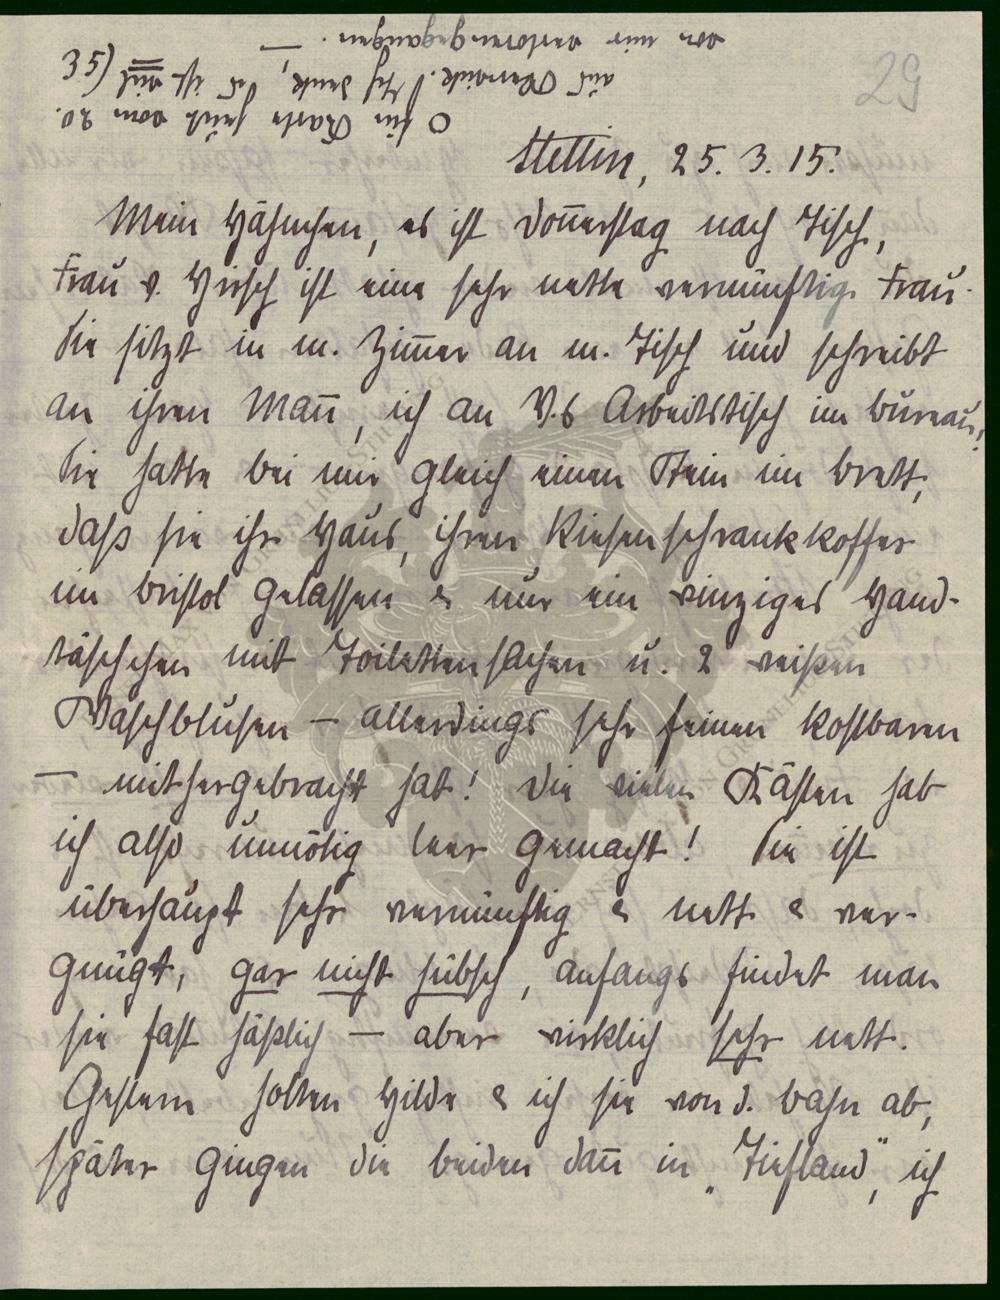 35)
29
O für Karte heut vom 20.
aus Oberwiek. Ich denk, das ist viel
von mir verlorengegangen. —
Stettin, 25. 3. 15.
Mein Hähnchen, es ist Don̅erstag nach Tisch,
Frau v. Hirsch ist eine sehr nette vernünftige Frau.
Sie sitzt in m. Zim̅er an m. Tisch und schreibt
an ihren Man̅, ich an V.s Arbeitstisch im Bureau.
Sie hatte bei mir gleich einen Stein im Brett,
daß sie ihr Haus, ihren Riesenschrankkoffer
im Bristol gelassen & nur ein einziges Hand-
täschchen mit Toilettensachen u. 2 weißen
Waschblusen — allerdings sehr feinen kostbaren
— mithergebracht hat! Die vielen Kästen hab
ich also unnötig leer gemacht! Sie ist
überhaupt sehr vernünftig & nett & ver-
gnügt, gar nicht hübsch, anfangs findet man
sie fast häßlich — aber wirklich sehr nett.
Gestern holten Hilde & ich sie von d. Bahn ab,
später gingen die beiden dan̅ in „Tiefland", ich